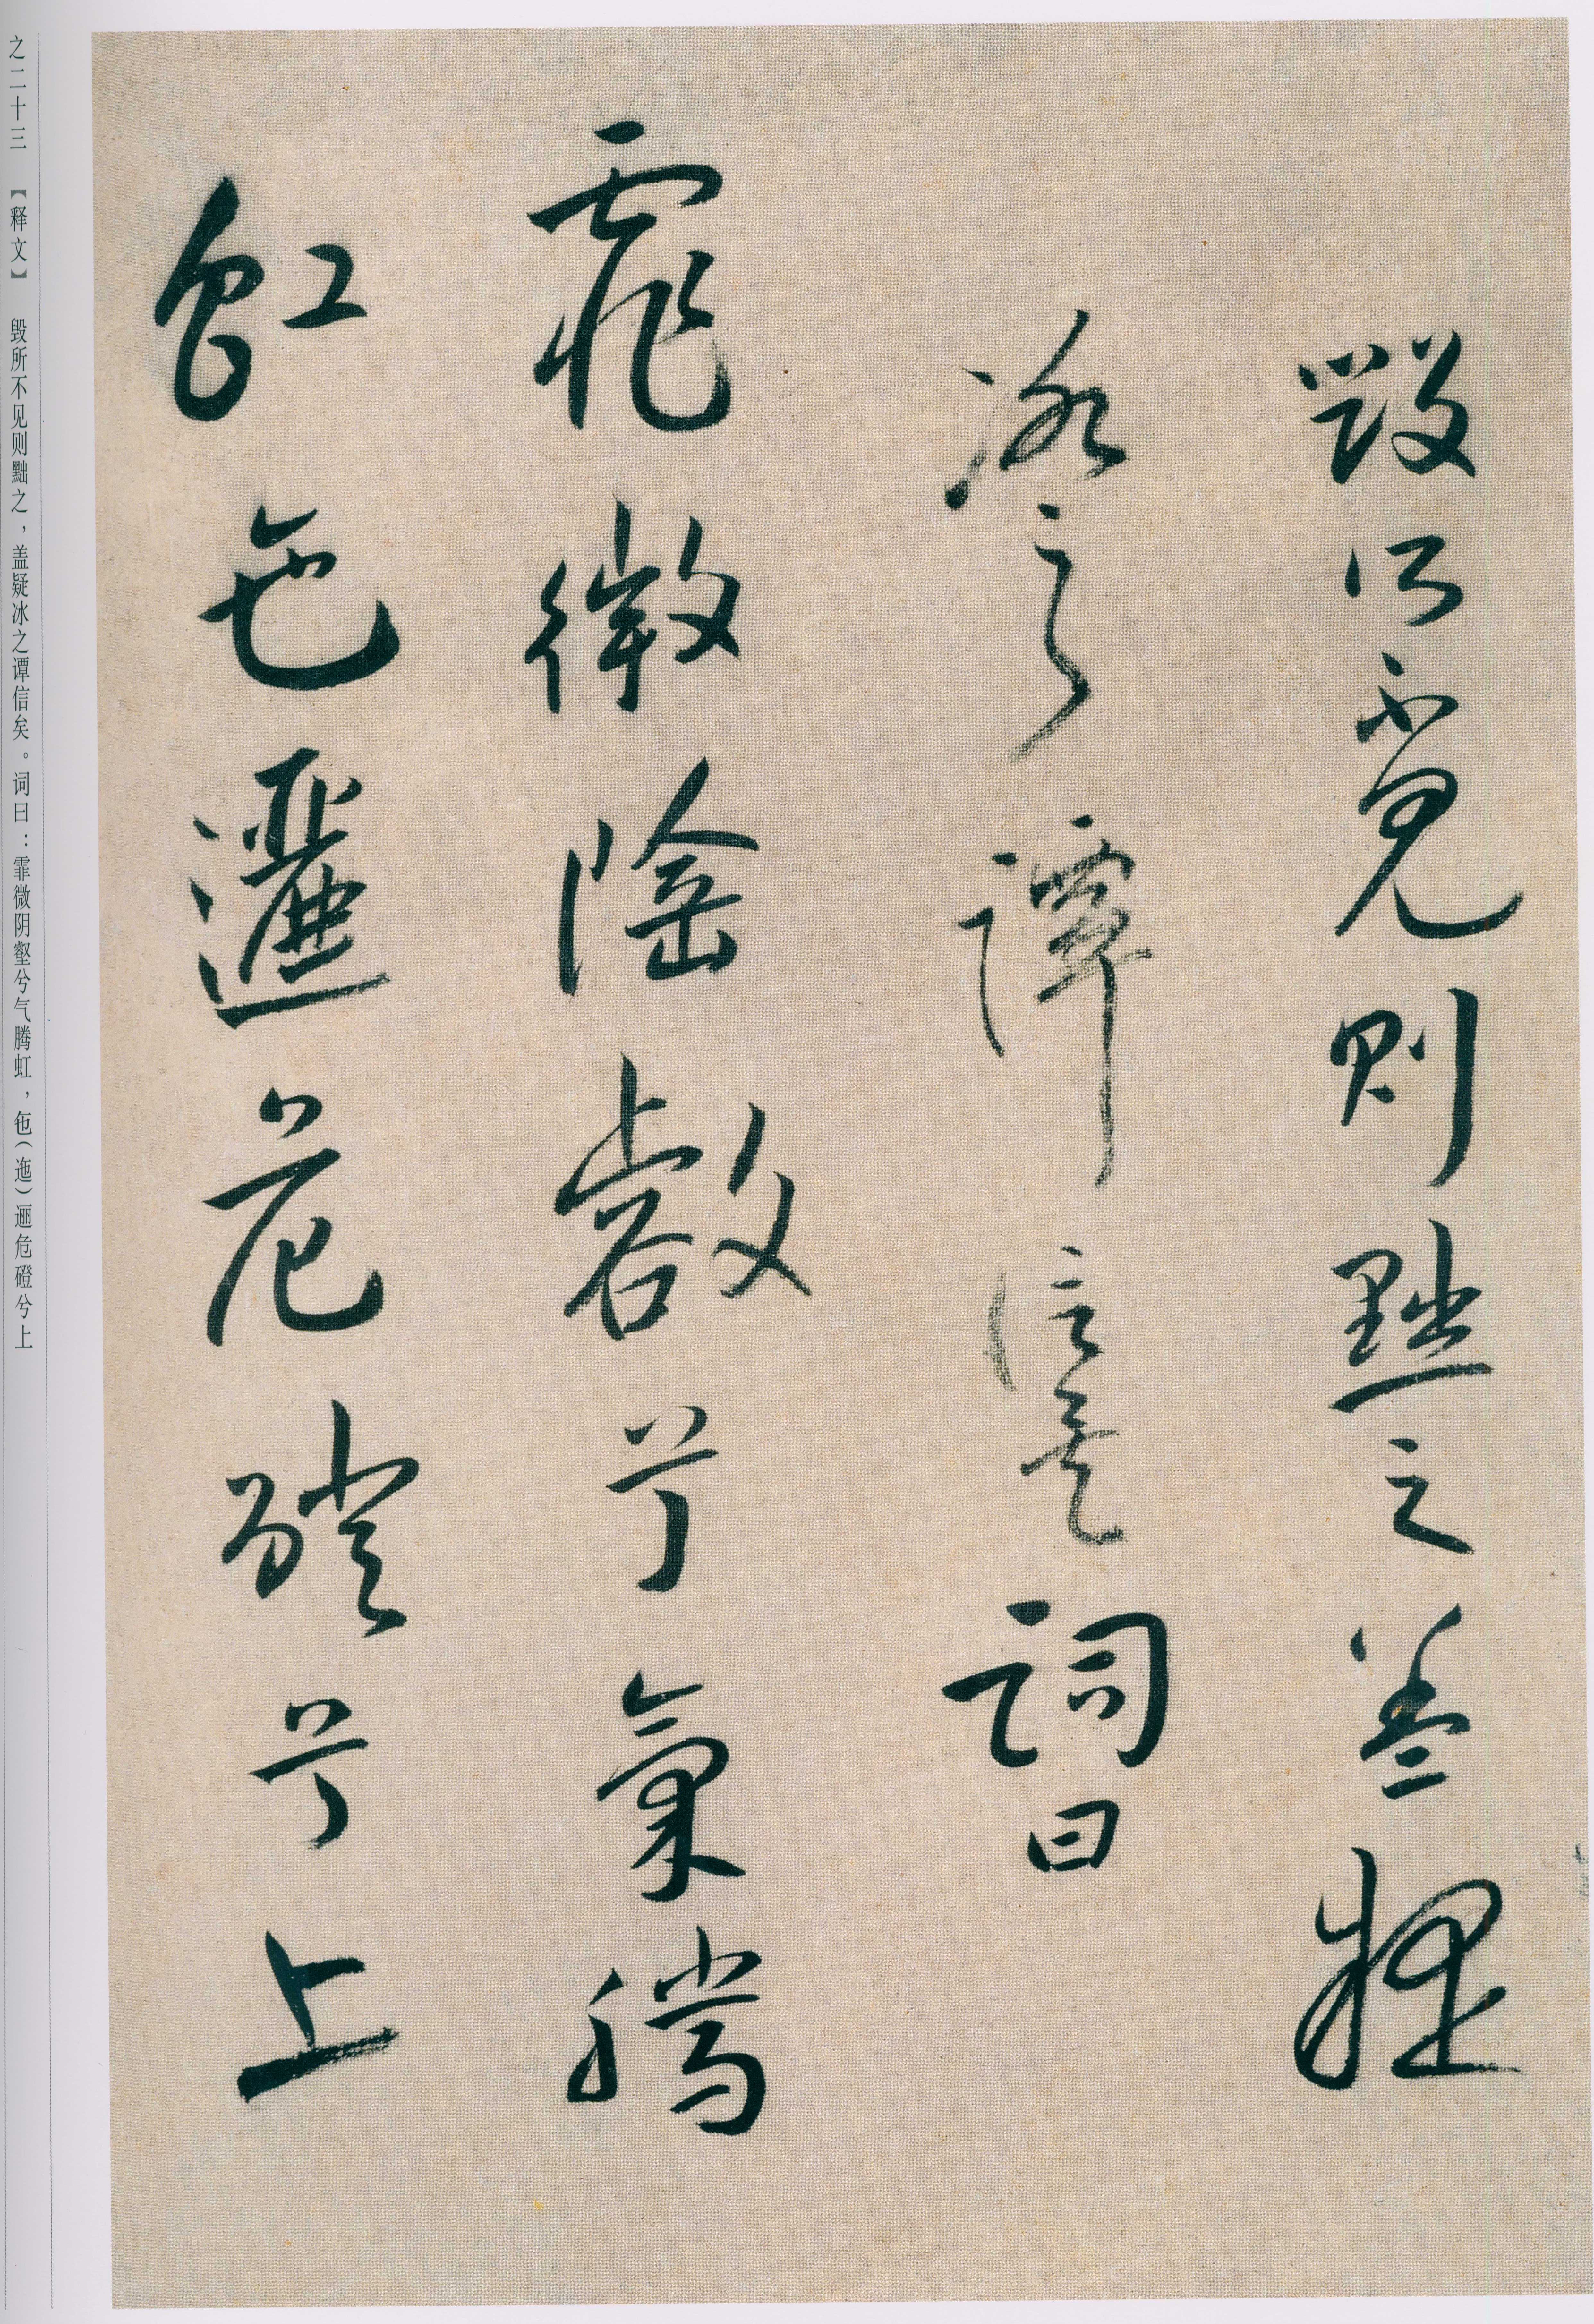 毀所不見則黜之盖疑
冰之譚信矣詞曰
霏微陰壑兮氣騰
虹迤邐危磴兮上
之二十三 【释文】 毁所不见则黜之，盖疑冰之谭信矣。词曰：霏微阴壑兮气腾虹，迤（迤）逦危磴兮上